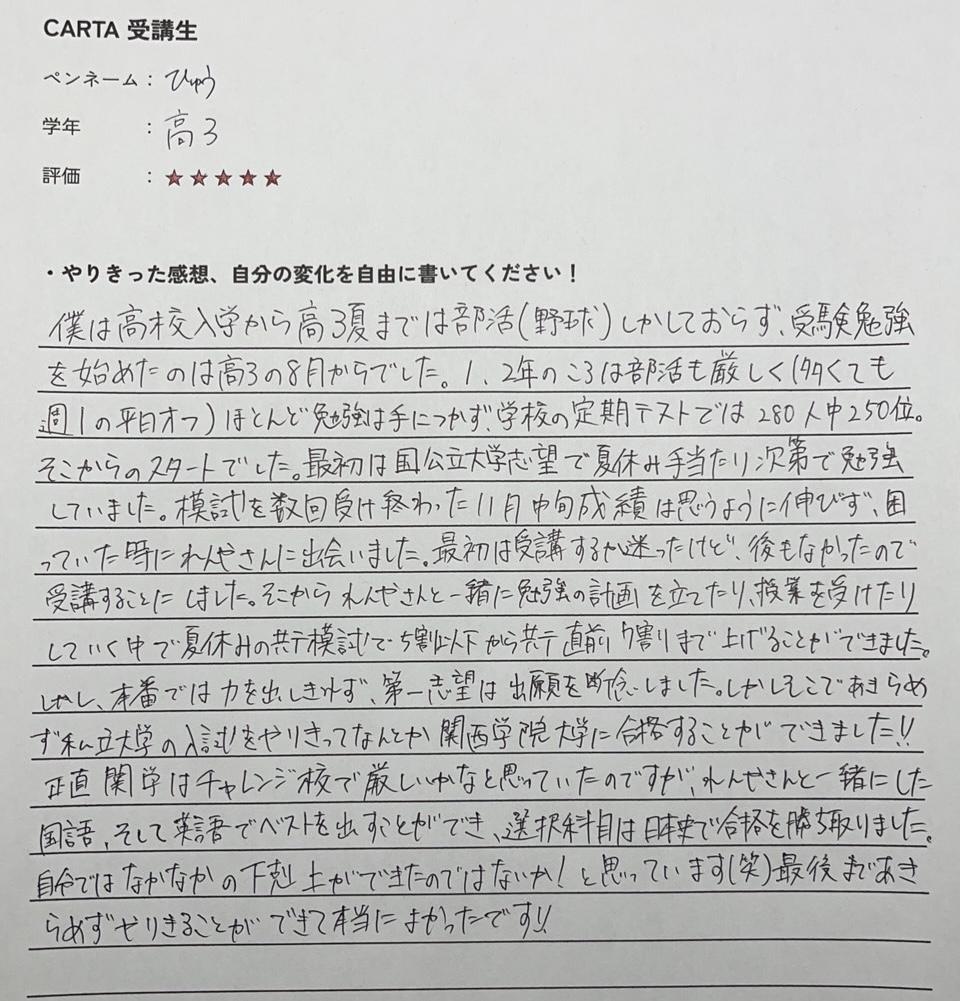 CARTA 受講生
ペンネーム : ひゅう
学年 : 高3
評価 : ★★★★★
・やりきった感想、自分の変化を自由に書いてください！
僕は高校入学から高3夏までは部活(野球)しかしておらず、受験勉強
を始めたのは高3の8月からでした。1、2年のころは部活も厳しく(多くても
週1の平日オフ)ほとんど勉強は手につかず、学校の定期テストでは280人中250位。
そこからのスタートでした。最初は国公立大学志望で夏休み手当たり次第で勉強
していました。模試を数回受け終わった11月中旬成績は思うように伸びず、困
っていた時にれんやさんに出会いました。最初は受講するか迷ったけど、後もなかったので
受講することにしました。そこかられんやさんと一緒に勉強の計画を立てたり、授業を受けたり
していく中で夏休みの共テ模試で5割以下から共テ直前7割りまで上げることができました。
しかし、本番では力を出しきれず、第一志望は出願を断念しました。しかしそこであきらめ
ず私立大学の入試をやりきってなんとか関西学院大学に合格することができました!!
正直関学はチャレンジ校で厳しいかなと思っていたのですが、れんやさんと一緒にした
国語、そして英語でベストを出すことができ、選択科目は日本史で合格を勝ち取りました。
自分ではなかなかの下剋上ができたのではないか！と思っています(笑)最後まであき
らめずやりきることができて本当によかったです!!